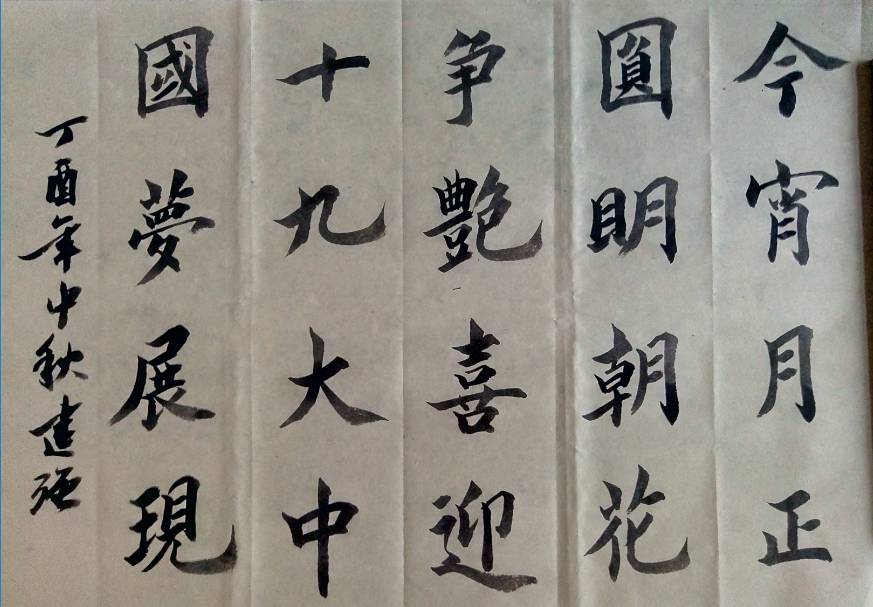 今宵月正
圓明朝花
争艷喜迎
十九大中
國夢展現
丁酉年中秋建强